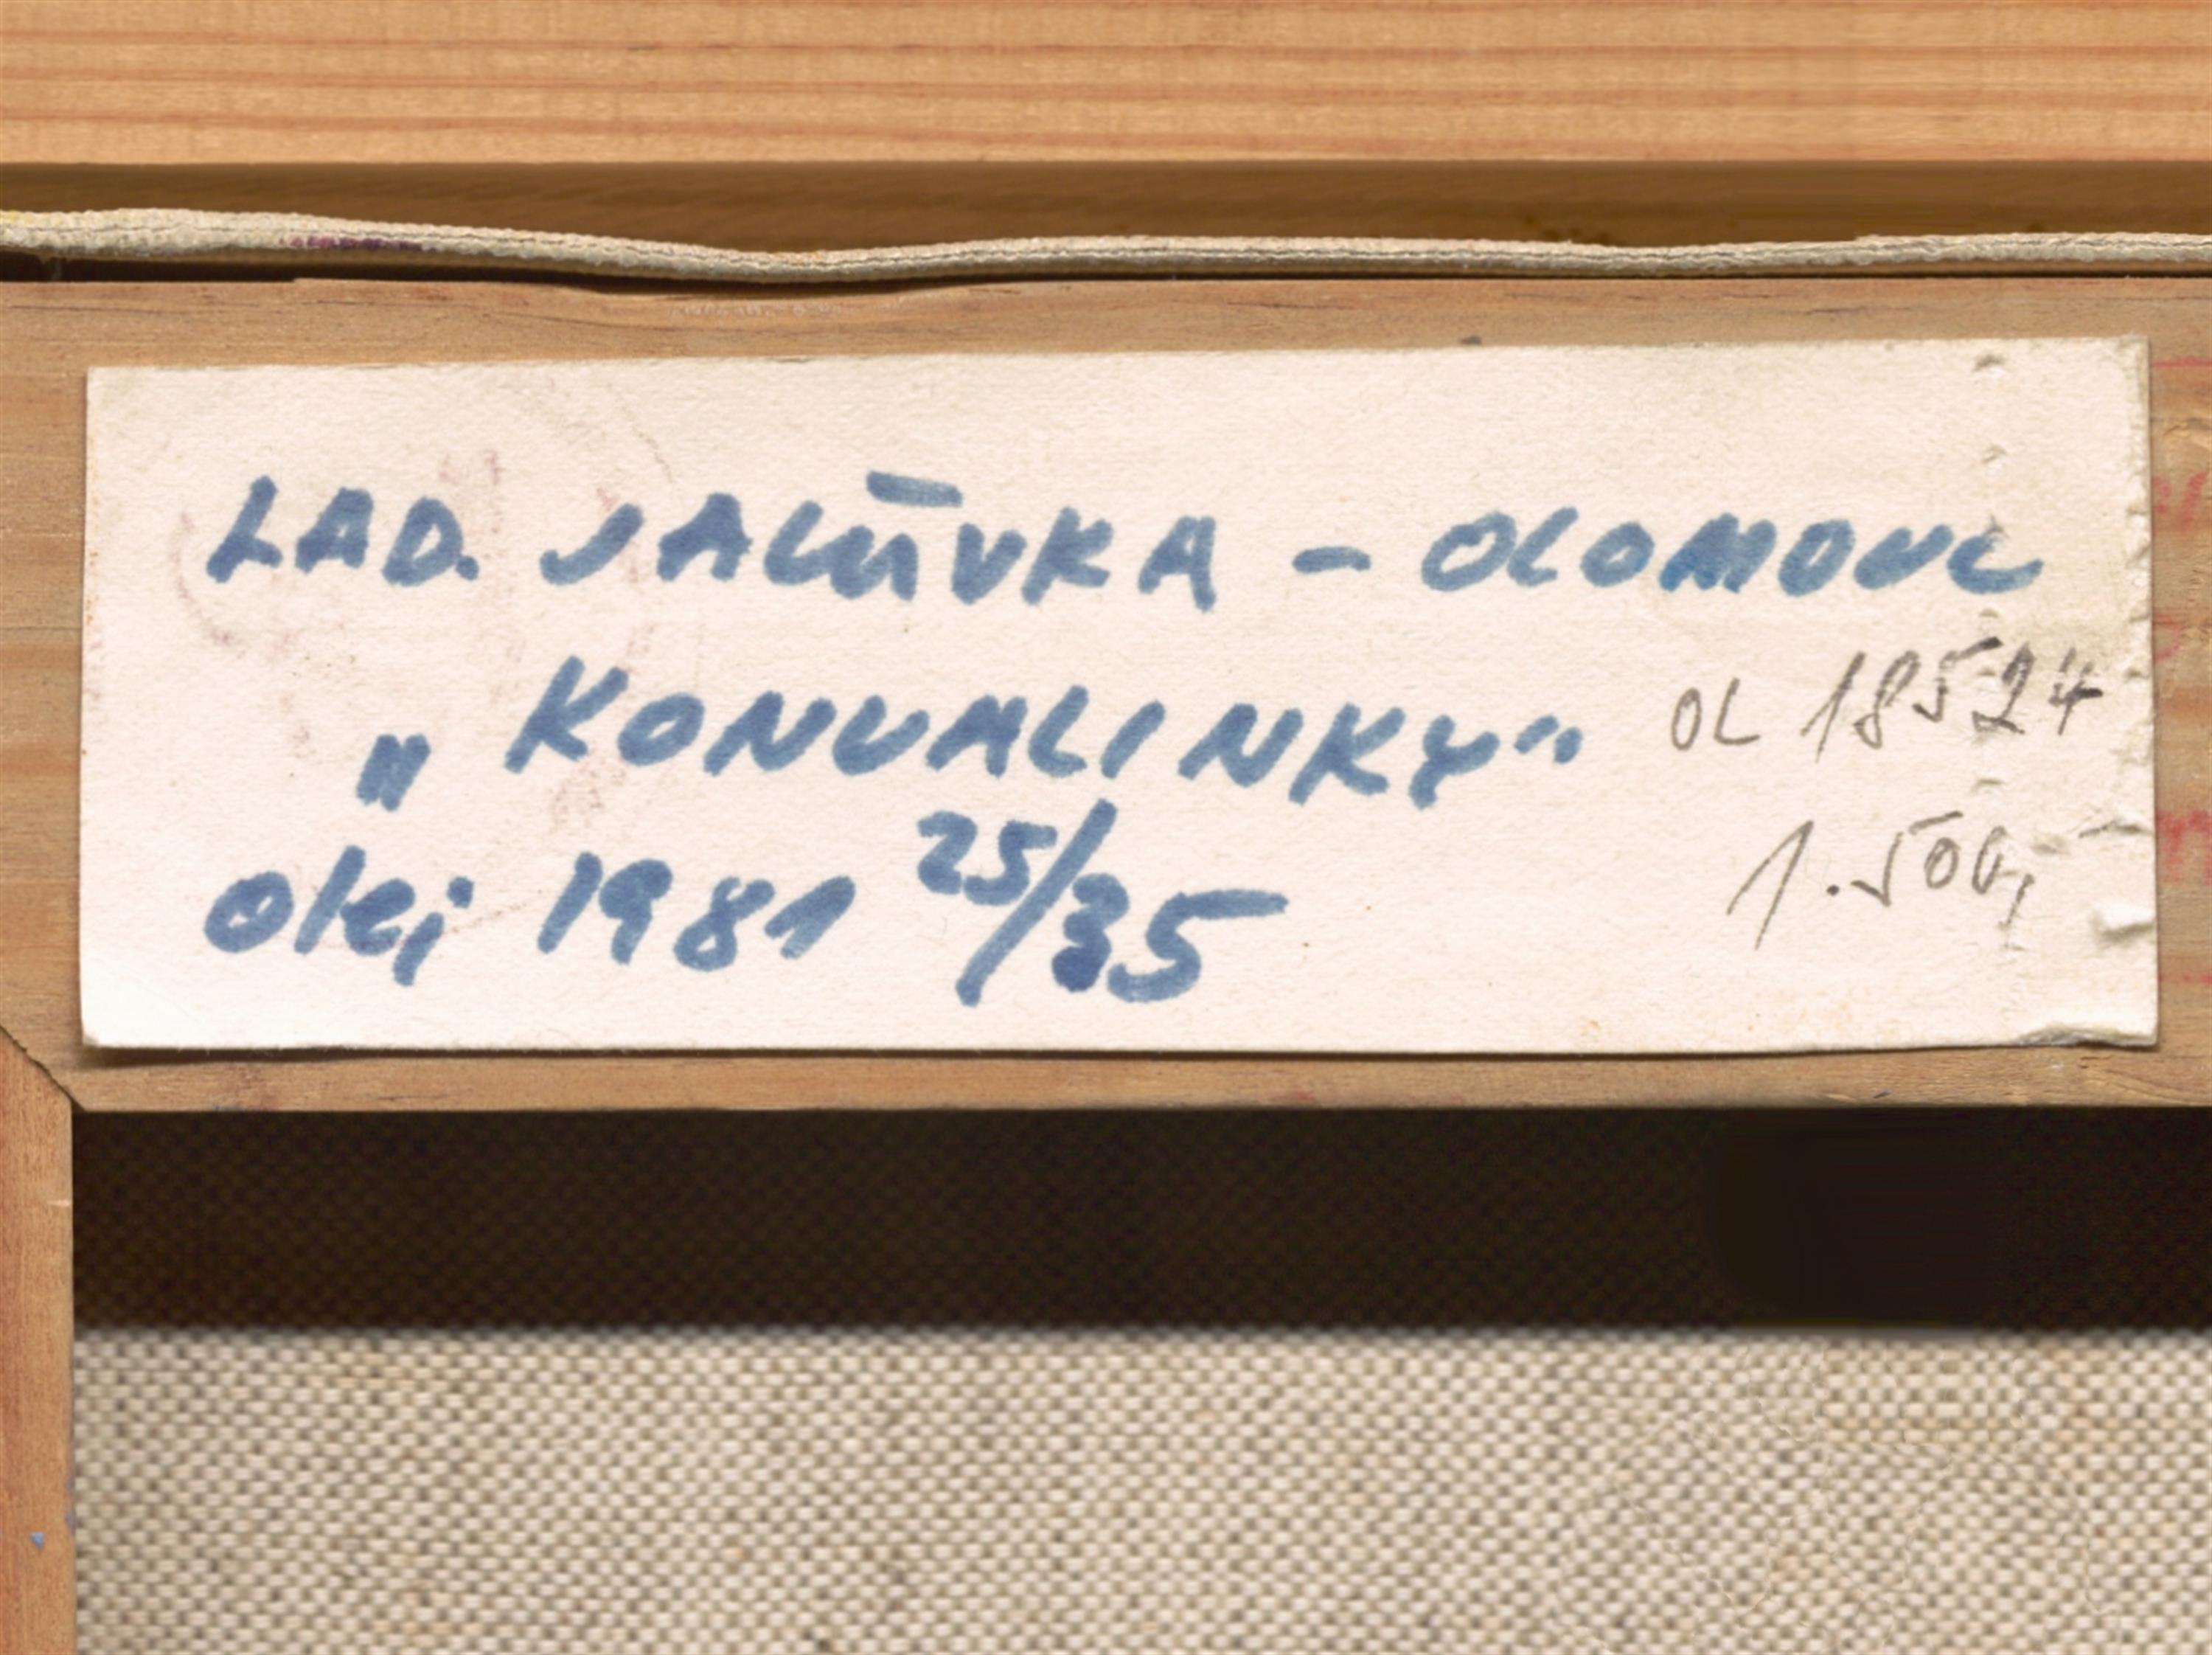 LAD. JALŪVKA - OLOMOUC
„KONVALINKY“
OL 18524
olej 1981 25/35
1.500,-